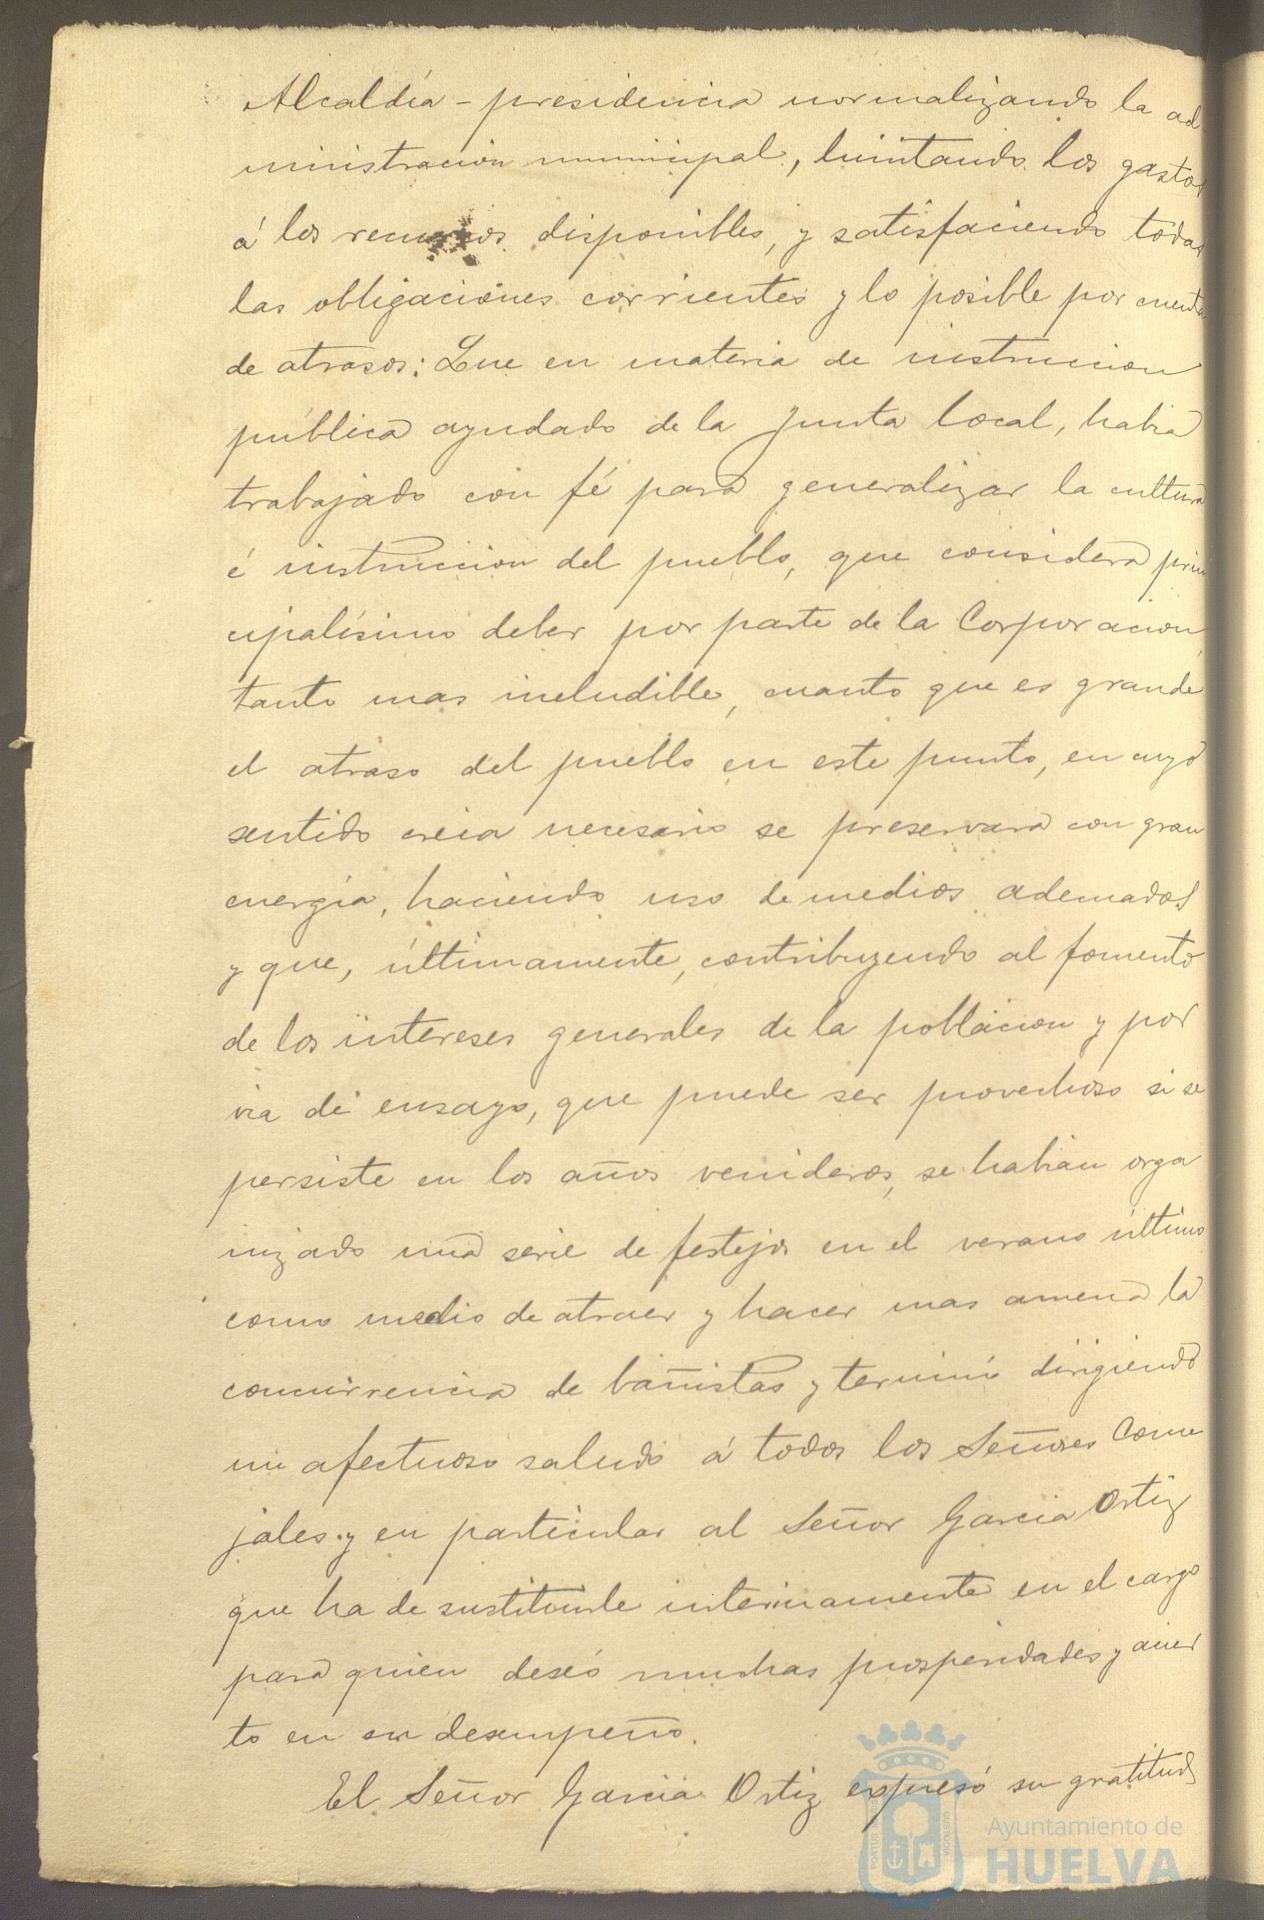 Alcaldía - presidencia normalizando la ad-
ministracion municipal, limitando los gastos
á los recursos disponibles, y satisfaciendo todas
las obligaciones corrientes y lo posible por cuenta
de atrasos: Que en materia de instruccion
pública ayudado de la Junta local, habia
trabajado con fé para generalizar la cultura
é instruccion del pueblo, que considera prin
cipalísimo deber por parte de la Corporacion,
tanto mas ineludible, cuanto que es grande
el atraso del pueblo en este punto, en cuyo
sentido creia necesario se preservara con gran
energía, haciendo uso de medios adecuados
y que, últimamente, contribuyendo al fomento
de los intereses generales de la poblacion y por
via de ensayo, que puede ser provechoso si se
persiste en los años venideros, se habian orga
nizado una serie de festejos en el verano último
como medio de atraer y hacer mas amena la
concurrencia de bañistas y terminó dirigiendo
un afectuoso saludo á todos los Señores Conce
jales y en particular al Señor Garcia Ortiz
que ha de sustituirle interinamente en el cargo
para quien deseó muchas prosperidades y acier
to en su desempeño.
El Señor Garcia Ortiz expresó su gratitud
Ayuntamiento de
HUELVA